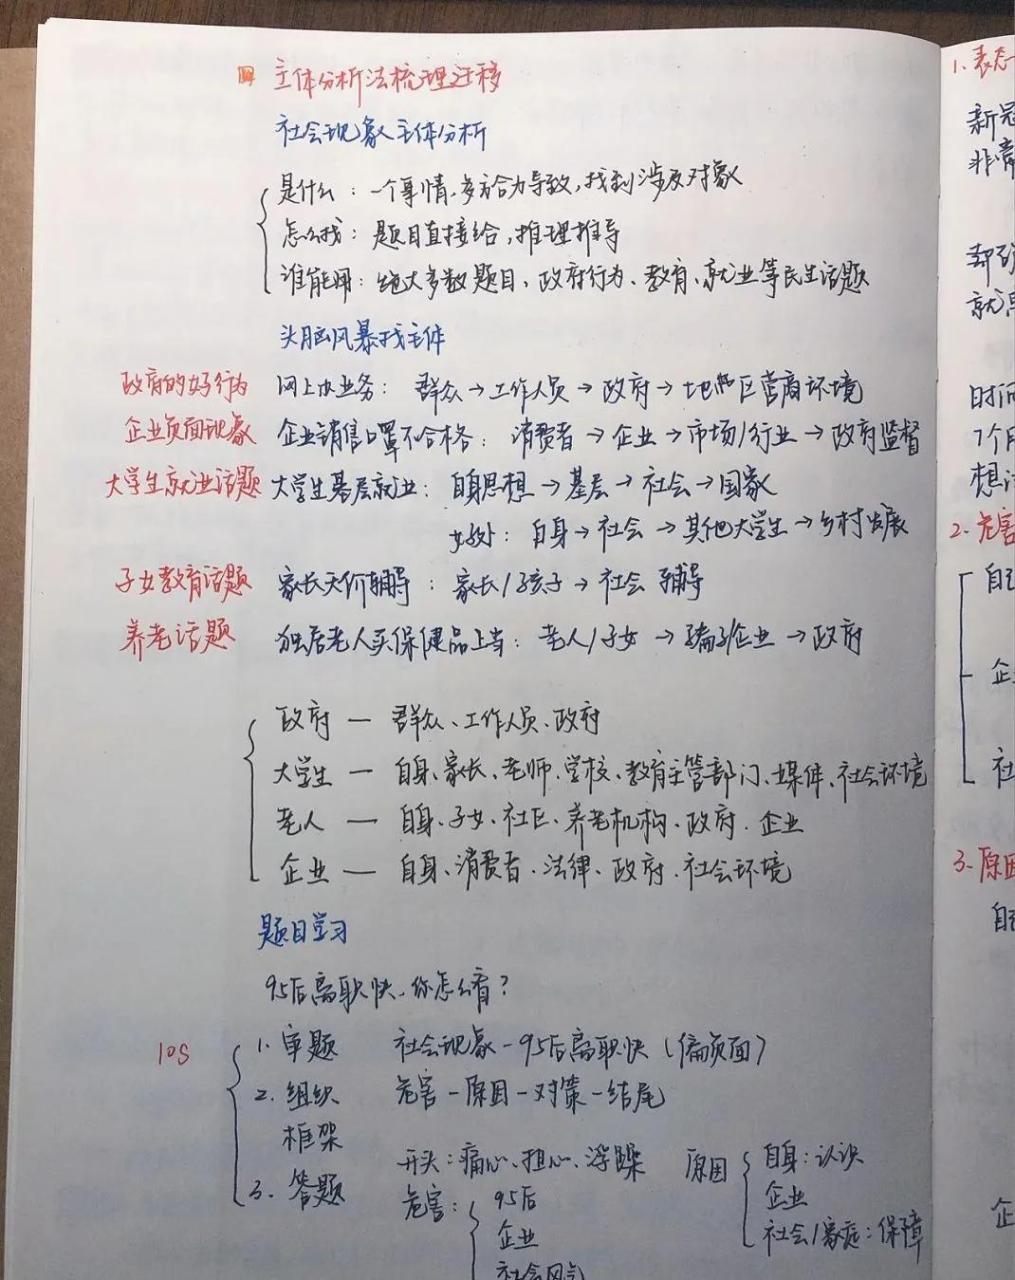 四 主体分析法梳理迁移
社会现象主体分析
是什么：一个事情，多方合力导致，找到涉及对象
怎么找：题目直接给，推理推导
谁能用：绝大多数题目、政府行为、教育、就业等民生话题
头脑风暴找主体
政府的好行为 网上办业务：群众→工作人员→政府→地区营商环境
企业负面现象 企业销售口罩不合格：消费者→企业→市场/行业→政府监督
大学生就业话题 大学生基层就业：自身思想→基层→社会→国家
好处：自身→社会→其他大学生→乡村发展
子女教育话题 家长天价辅导：家长/孩子→社会 辅导
养老话题 独居老人买保健品上当：老人/子女→骗子/企业→政府
政府 — 群众、工作人员、政府
大学生 — 自身、家长、老师、学校、教育主管部门、媒体、社会环境
老人 — 自身、子女、社区、养老机构、政府、企业
企业 — 自身、消费者、法律、政府、社会环境
题目学习
95后离职快，你怎么看？
10s
1. 审题 社会现象-95后离职快（偏负面）
2. 组织 危害-原因-对策-结尾
框架
3. 答题 开头：痛心、担心、浮躁
危害：95后
企业
社会风气
原因 自身：认识
企业
社会/家庭：保障
1. 表态
新冠
非常
却
就
时间
7个月
想
2. 危害
自己
企
社
3. 原因
自己
企